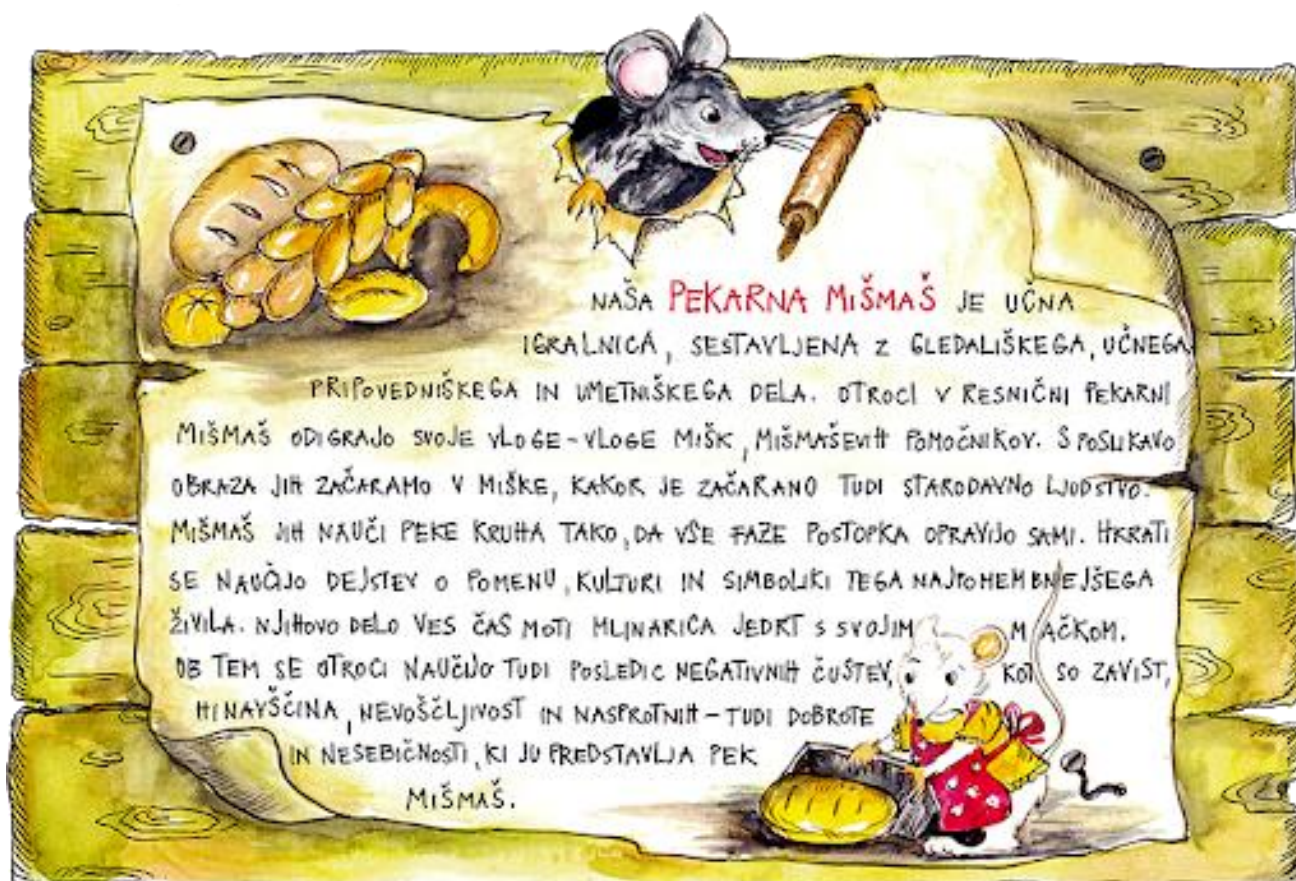 NAŠA PEKARNA MIŠMAŠ JE UČNA
IGRALNICA, SESTAVLJENA Z GLEDALIŠKEGA, UČNEGA
PRIPOVEDNIŠKEGA IN UMETNIŠKEGA DELA. OTROCI V RESNIČNI PEKARNI
MIŠMAŠ ODIGRAJO SVOJE VLOGE-VLOGE MIŠK, MIŠMAŠEVIH POMOČNIKOV. S POSLIKAVO
OBRAZA JIH ZAČARAMO V MIŠKE, KAKOR JE ZAČARANO TUDI STARODAVNO LJUDSTVO.
MIŠMAŠ JIH NAUČI PEKE KRUHA TAKO, DA VSE FAZE POSTOPKA OPRAVIJO SAMI. HKRATI
SE NAUČIJO DEJSTEV O POMENU, KULTURI IN SIMBOLIKI TEGA NAJPOMEMBNEJŠEGA
ŽIVILA. NJIHOVO DELO VES ČAS MOTI MLINARICA JEDRT S SVOJIM MAČKOM.
OB TEM SE OTROCI NAUČIJO TUDI POSLEDIC NEGATIVNIH ČUSTEV, KOT SO ZAVIST,
HINAVŠČINA, NEVOŠČLJIVOST IN NASPROTNIH - TUDI DOBROTE
IN NESEBIČNOSTI, KI JU PREDSTAVLJA PEK
MIŠMAŠ.